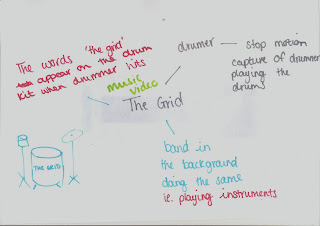 The words 'the grid'
appear on the drum
kit when drummer hits
music
video
The Grid
drumer — stop motion
capture of drummer
playing the
drums
THE GRID
band in
the background
doing the same
ie. playing instruments